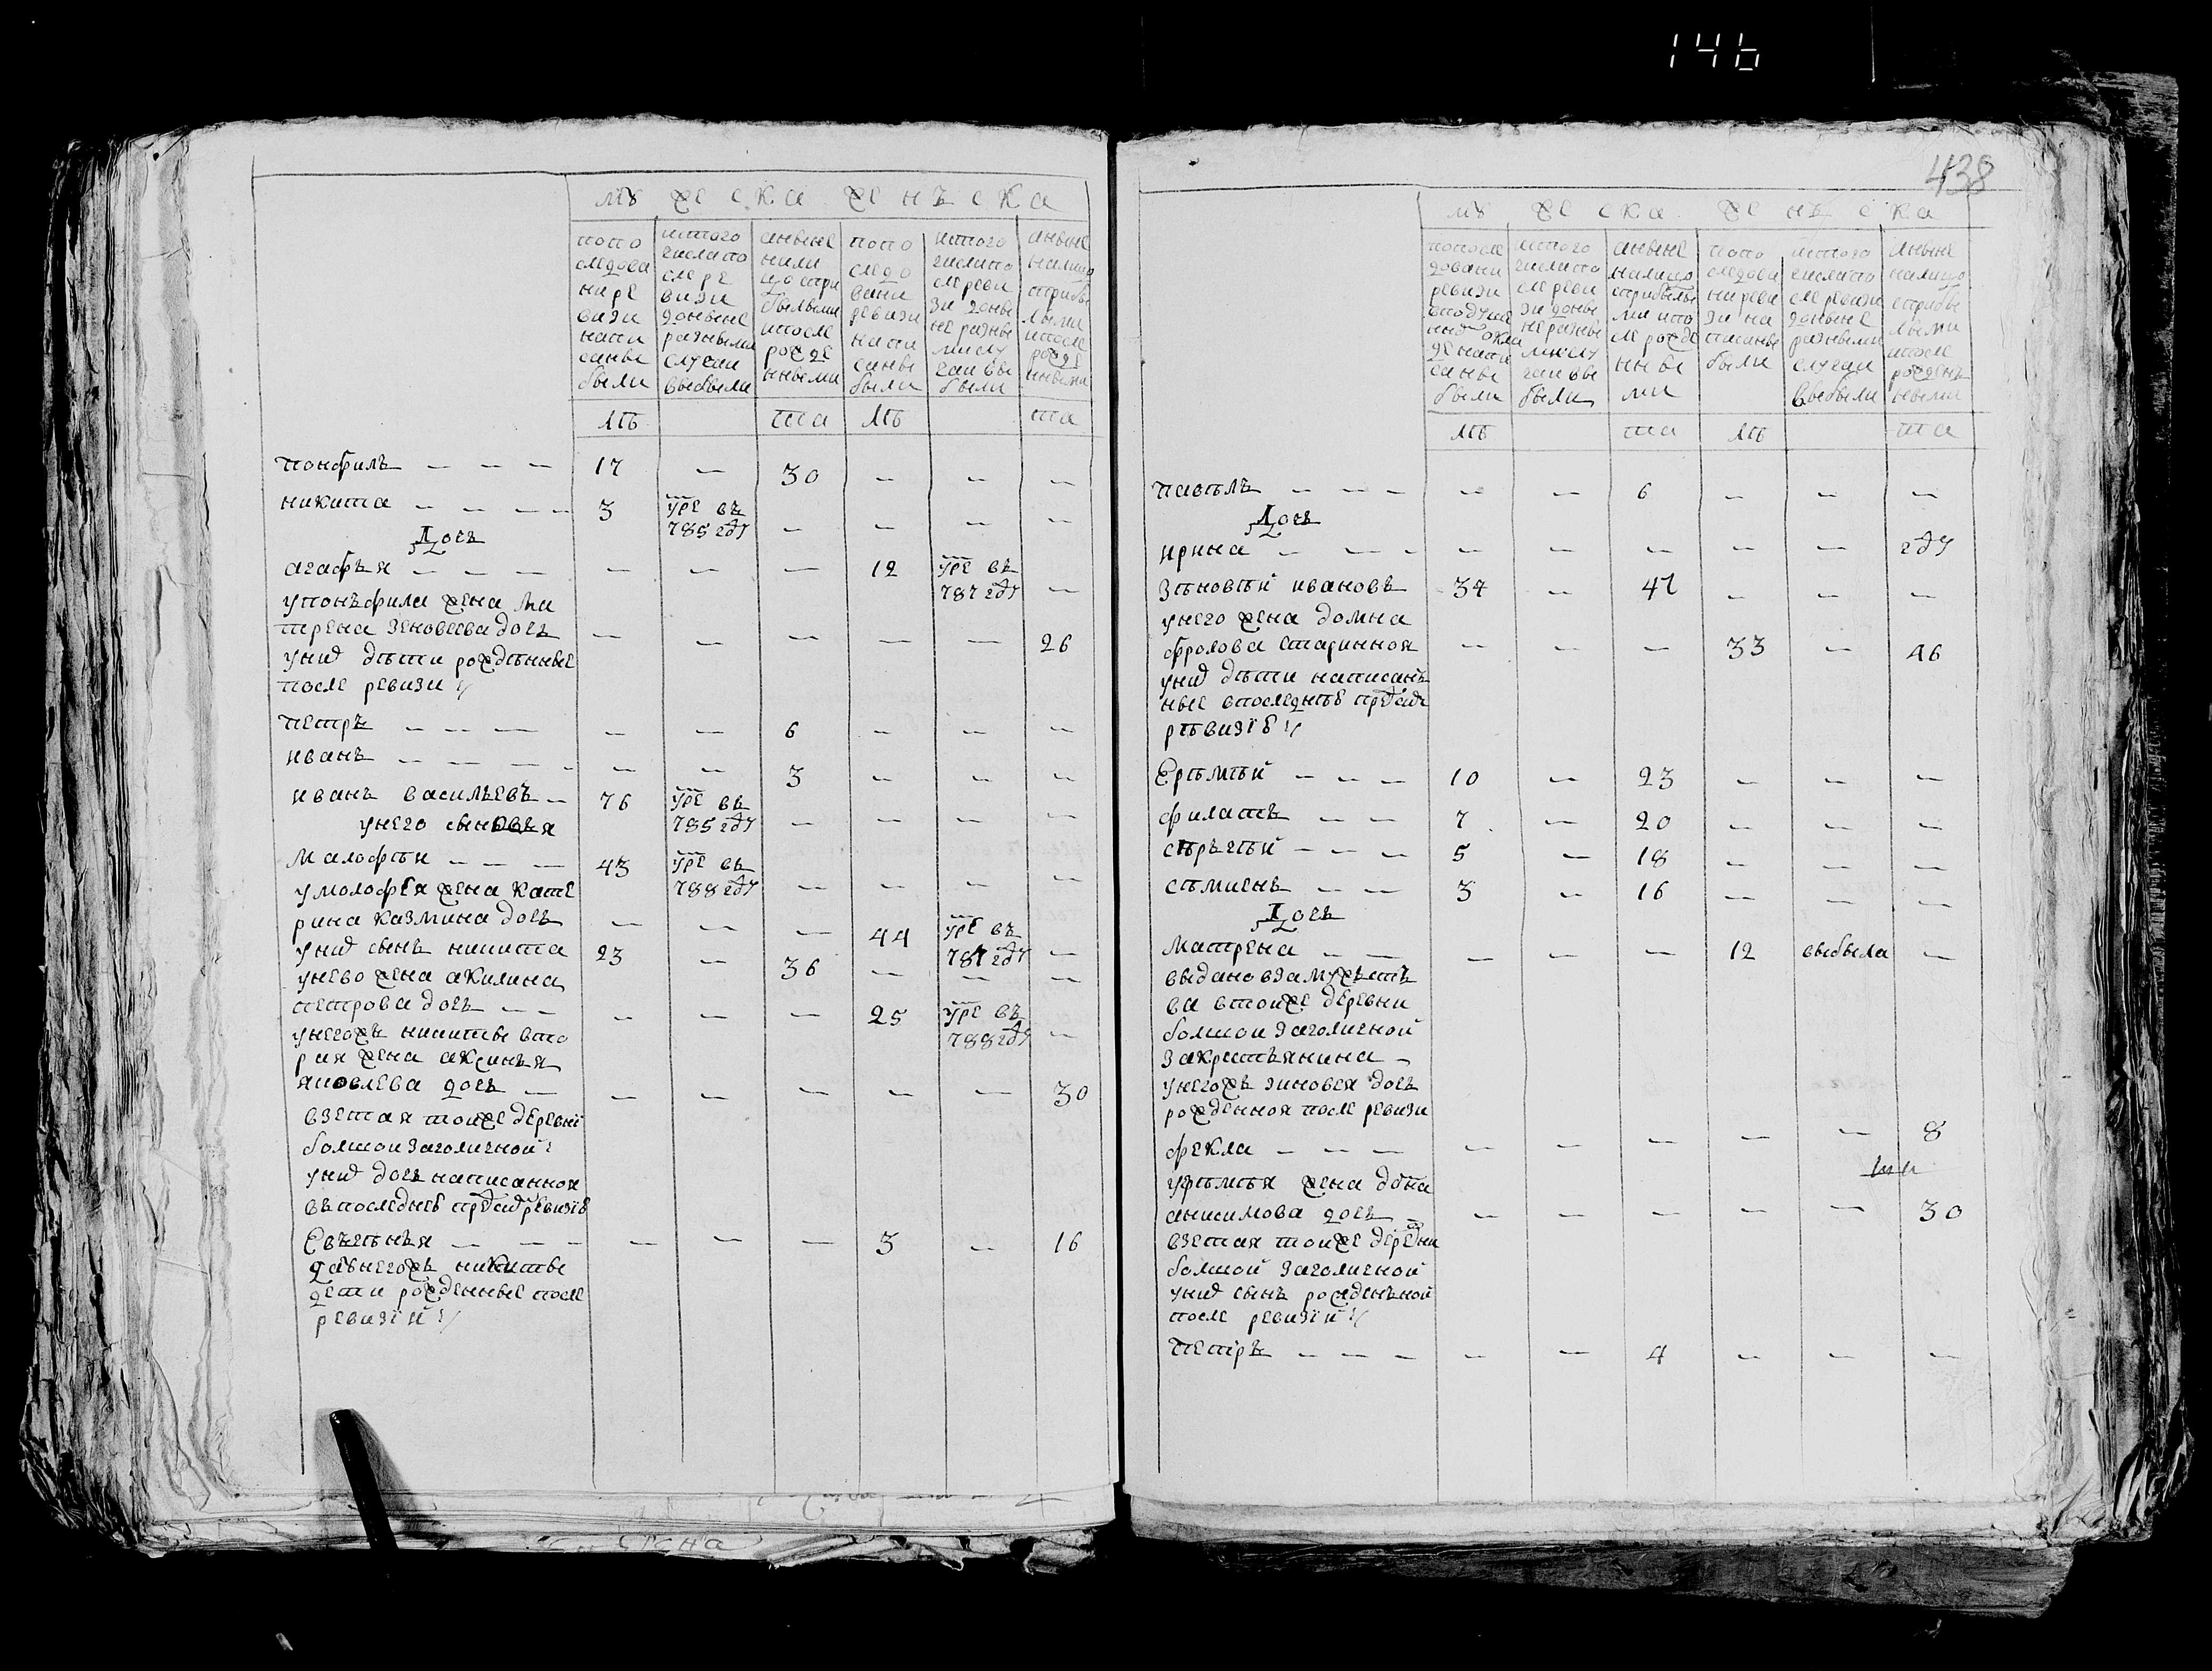 146
мꙋ же ска женъ ска
попо следова ни ре визи напи санные были
истого числа по сле ре визи доныне разными случаи выбыли
аныне нали цо спри былыми ипосле рожде нными
попо следо вани ревизи напи саные были
истого числапо сле реви зи доны не разны ми слу чаи вы были
аныне налицо сприбы лыми ипосле рожде нными
лѣ та лѣ та
понфилъ — — — 17 — 30 — — —
никита — — — — 3 уре въ 785 году — — — —
дочь
агафья — — — — — — 12 уре въ 787 году —
упонъфила жена ма
трена зеновеева дочь — — — — — 26
уних дѣти рождѣнные
после ревизи
петръ — — — — — 6 — — —
иванъ — — — — — — 3 — — —
иванъ васильевъ — 76 уре въ 785 году — — — —
унего сыновья
малофѣи — — — 43 уре въ 788 году — — — —
умолофея жена кате
рина казмина дочь — — — 44 уре въ 787 году —
уних сынъ никита 23 — 36 — — —
унево жена акилина
петрова дочь — — — — — 25 уре въ 788 году —
унегожъ никиты вто
рая жена аксинья
яковлева дочь — — — — — — 30
взетая тоиже деревнї
болшои заголичной
уних дочь написанноя
въпоследнеѣ пред сих ревизїѣ
Евъгѣнья — — — — — — 3 — 16
даунегожъ никиты
дети рожденные после
ревизїи
438
мꙋ же ска же нъ ска
попосле довани ревизи
истого числапо сле реви зи доны не разны ми слу чаи вы были
аныне налицо сприбылы ми ипо сле рожде нны ми
попо следова ни реви зи на писаны были
истого числапо сле ревизи доныне разными случаи выбыли
аныне налицо сприбы лыми ипосле рожденъ ными
лѣ та лѣ та
павѣлъ — — — — — 6 — — —
дочь
ирина — — — — — — — — году
зѣновѣй ивановъ 34 — 47 — — —
унего жена домна
фролова старинноя — — — 33 — 46
уних дѣти написанъ
ные впоследнѣе пред сих
рѣвизїѣ
Ерѣмѣй — — — 10 — 23 — — —
филатъ — — 7 — 20 — — —
сѣргѣй — — — 5 — 18 — — —
сѣмиенъ — — 3 — 16 — — —
дочь
матрена — — — — — 12 выбыла —
выдано взамужъстъ
ва втоиже деревни
болшои заголичной
закрестьянина —
унегожъ зиновея дочь
рожденноя после ревизи
фекла — — — — — — — — 8
уярѣмѣя жена домна
анисимова дочь — — — — — — 30
взетая тоиже деревни
болшой заголичной
уних сынъ рожденъной
после ревизїи
петръ — — — — — 4 — — —